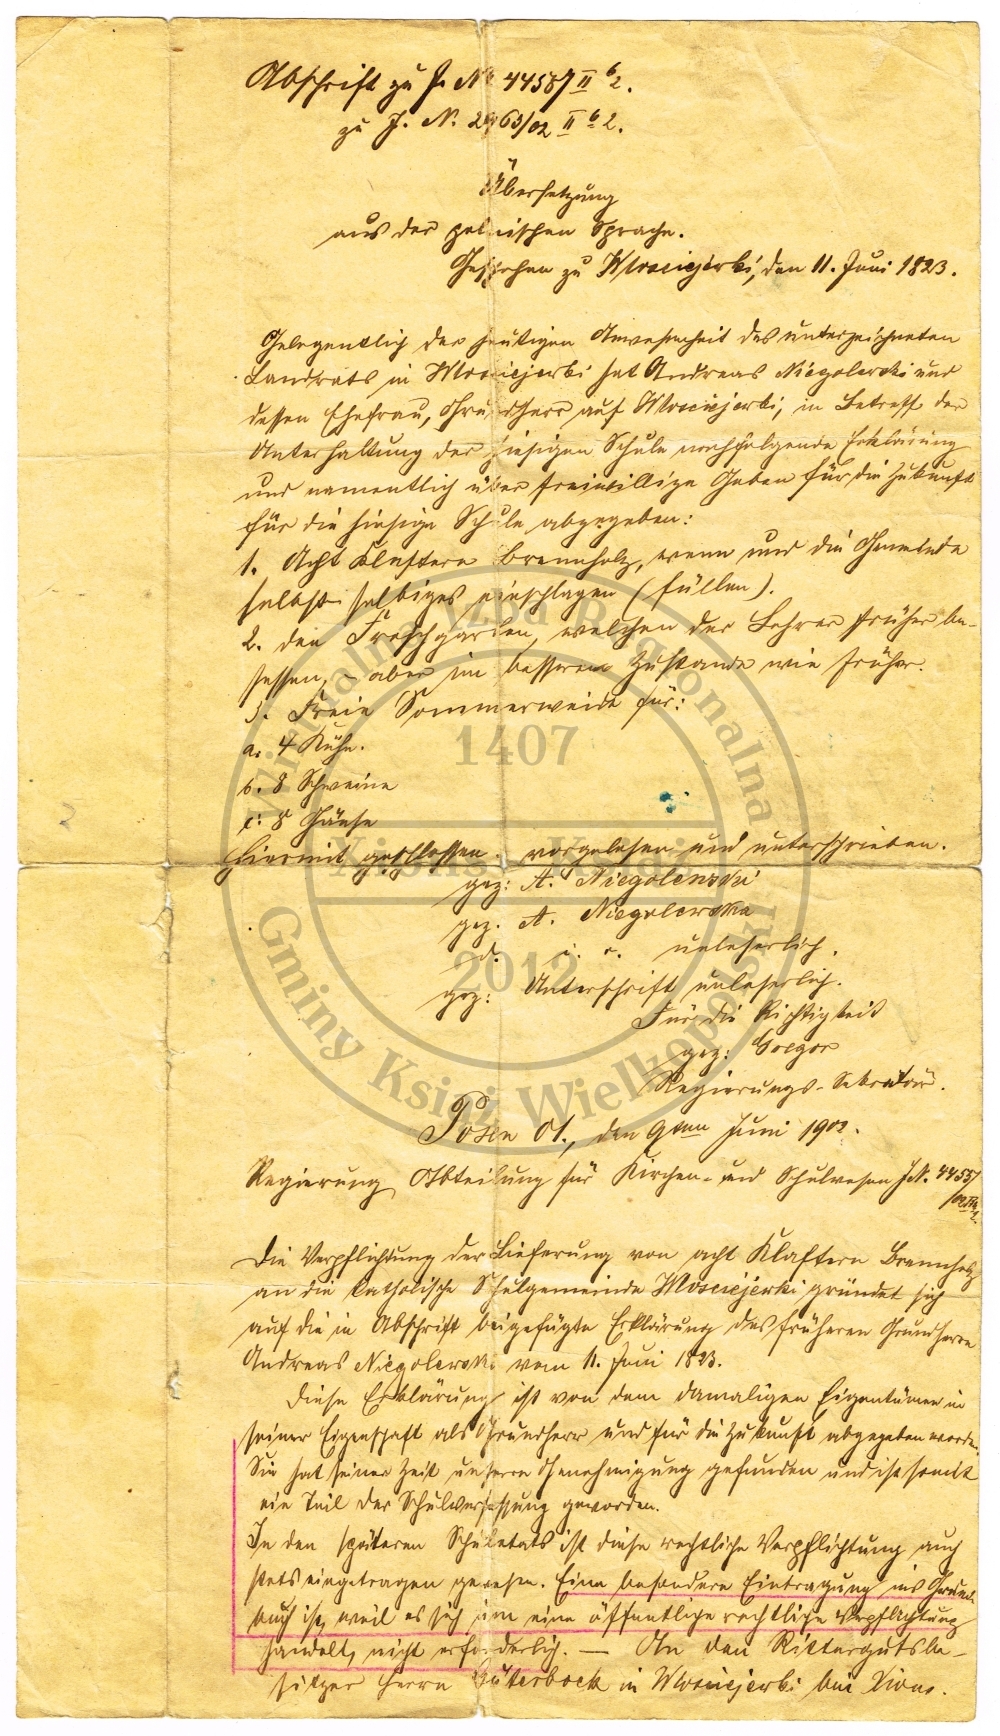 Abschrift zu J. No 4458/ II b 2.
zu J. N. 2963/02 II b 2.
Übersetzung
aus der polnischen Sprache.
Geschehen zu Wlosciejewki, den 11. Juni 1823.
Gelegentlich der heutigen Anwesenheit des unterzeichneten
Landrats in Wlosciejewki hat Andreas Niegolewski und
dessen Ehefrau, Grundherr auf Wlosciejewki, in Betreff der
Unterhaltung der hiesigen Schule nachfolgende Erklärung
und namentlich über freiwillige Gaben für die Zukunft
für die hiesige Schule abgegeben:
1. Acht Klaftern Brennholz, wenn und die Gemeinde
selbst selbiges einschlagen (füllen).
2. den garten, welchen der Lehrer früher be-
sessen, – aber im besseren Zustande wie früher.
3. Freie Sommerweide für:
a. 4 Kühe.
b. 8 Schweine
c. 8 Gänse
Hiermit geschlossen, vorgelesen und unterschrieben.
gez: A. Niegolewski
gez. A. Niegolewska
unleserlich.
gez: Unterschrift unleserlich.
Für die Richtigkeit
gez: Gregor
Regierungs-Sekretär.
Posen O1, den 9ten Juni 1902.
Regierung Abteilung für Kirchen- und Schulwesen J.N. 4455/
Die Verpflichtung der Lieferung von acht Klaftern Brennholz
an die katholische Schulgemeinde Wlosciejewki gründet sich
auf die in Abschrift beigefügte Erklärung des früheren Grundherrn
Andreas Niegolewski vom 11. Juni 1823.
Diese Erklärung ist von dem damaligen Eigentümer in
seiner Eigenschaft als Grundherr und für die Zukunft abgegeben worden.
Sie hat seiner Zeit unsere Genehmigung gefunden und ist somit
ein Teil der Schulverfassung geworden.
In den späteren Schuletats ist diese rechtliche Verpflichtung auch
stets eingetragen gewesen. Eine besondere Eintragung ins Grund-
buch ist, weil es sich um eine öffentliche rechtliche Verpflichtung
handelt, nicht erforderlich. — An den Rittergutsbe-
sitzer Herrn Jüterbock in Wlosciejewki bei Xions.
Wirtualna Izba Regionalna
1407
Xions - Książ
2012
Gminy Książ Wielkopolski